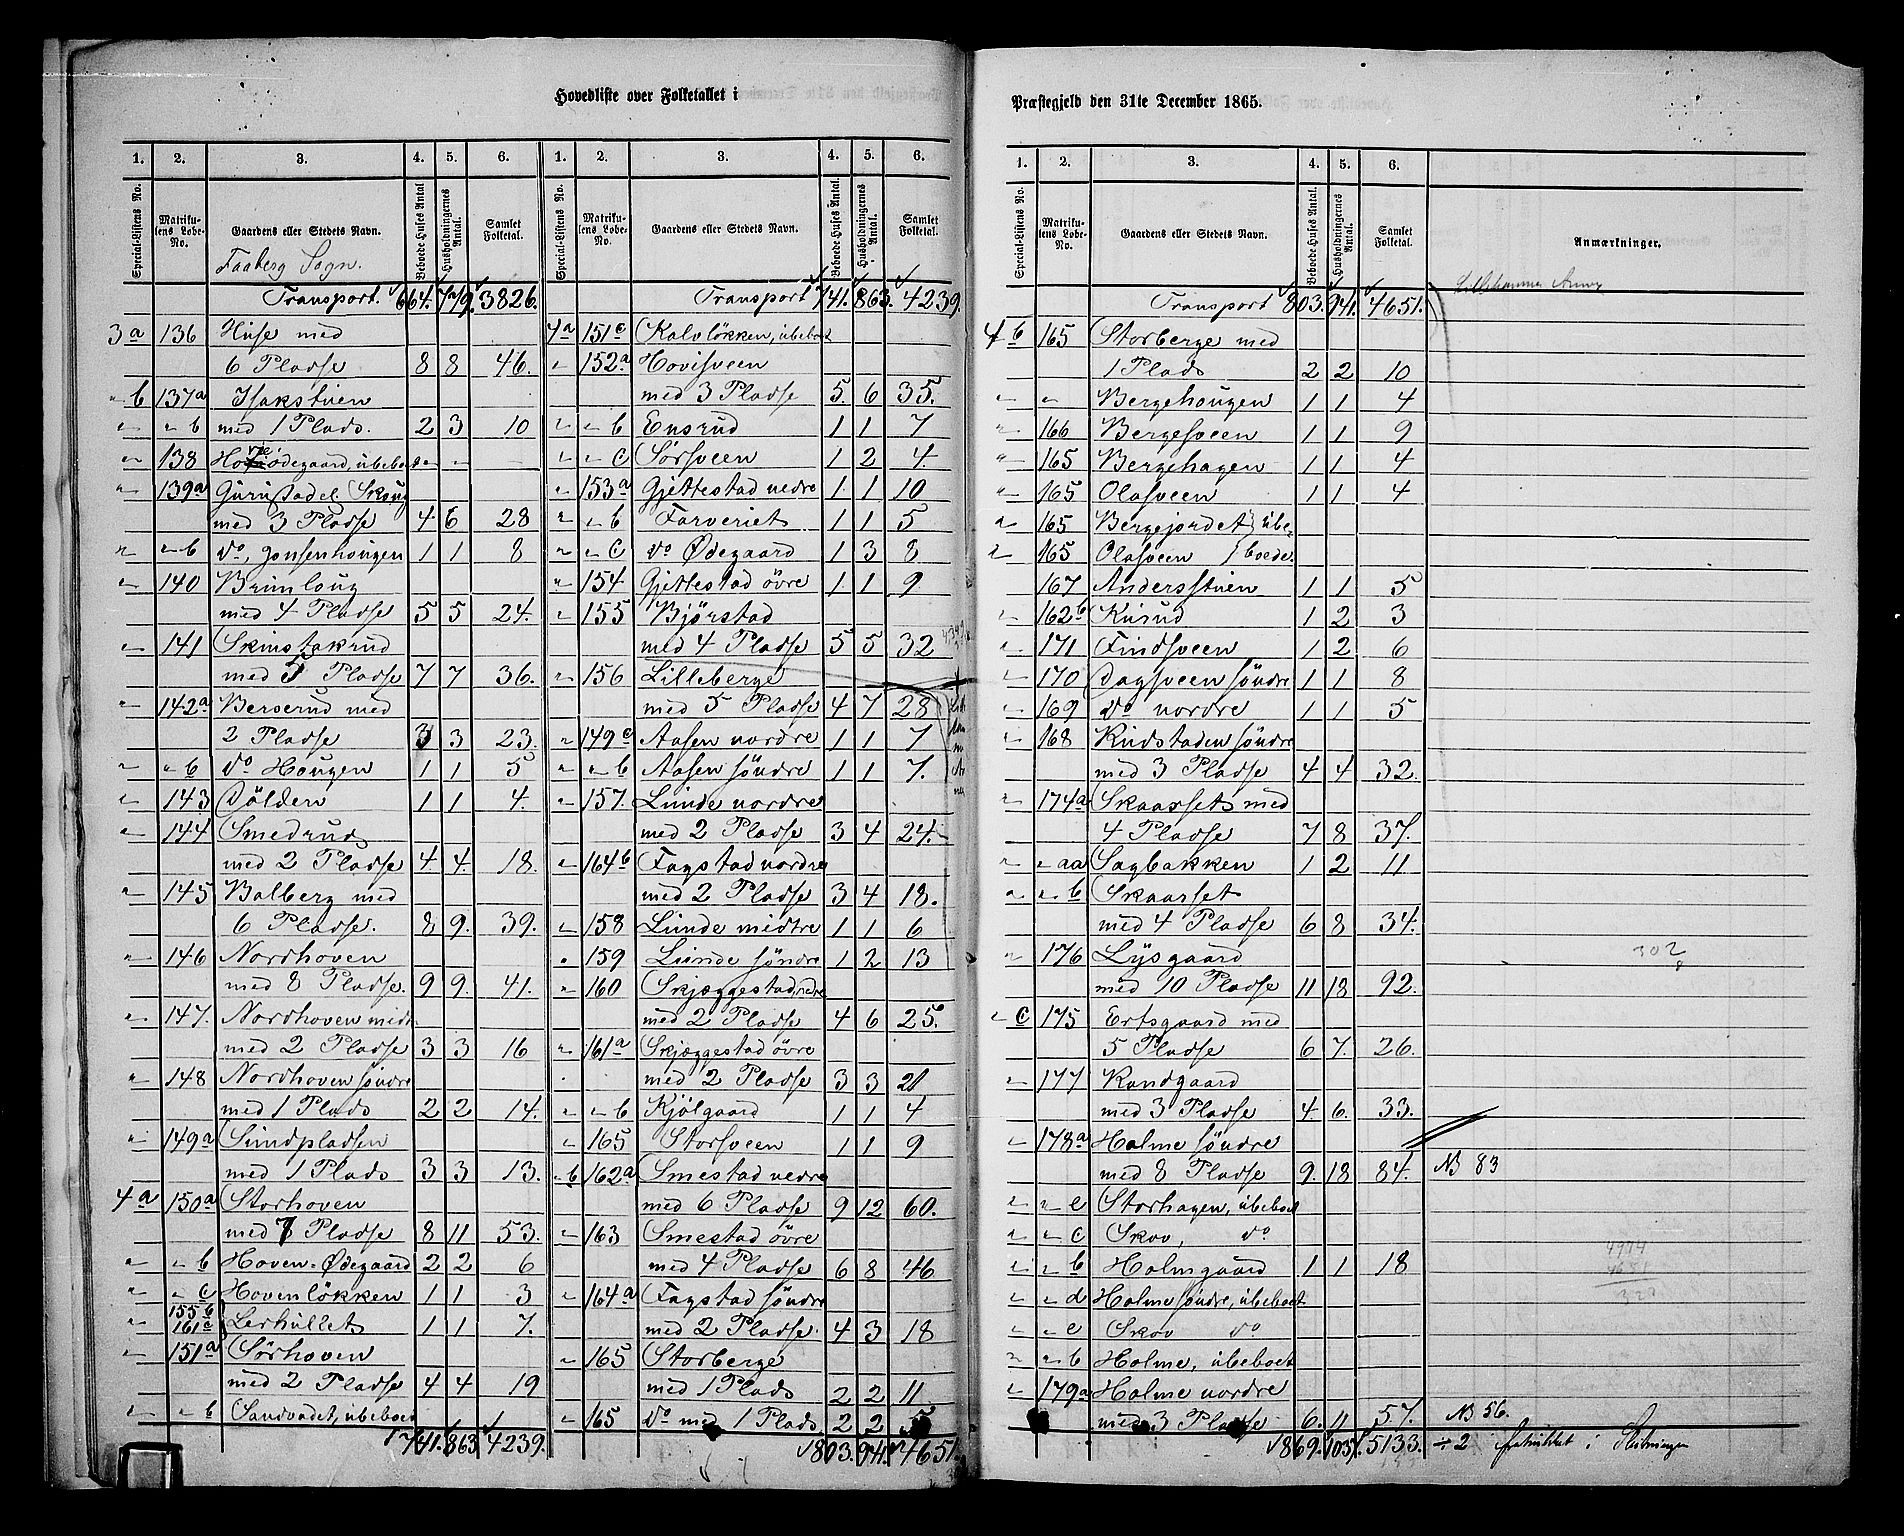 Hovedliste over Folketallet i
1. 2. 3. 4. 5. 6. 1. 2. 3. 4. 5. 6.
Special-Listens No. Matrikulens Løbe-No. Gaardens eller Stedets Navn. Beboede Huses Antal Husholdningernes Antal. Samlet Folketal. Special-Listens No. Matrikulens Løbe-No. Gaardens eller Stedets Navn. Beboede Huses Antal. Husholdningernes Antal. Samlet Folketal.
Faaberg Sogn.
Transport. 664. 779. 3826.
3a 136 Huse med
6 Pladse 8 8 46.
" b 137a Isakstuen
" " b med 1 Plads. 2 3 10
" 138 Hovre Ødegaard, ubeboet " "
" 139a Gurustadel. Skoug
med 3 Pladse 4 6 28
" " b do, Jonsenhougen 1 1 8
" 140 Brimloug
med 4 Pladse 5 5 24.
" 141 Skinstakrud
med 5 Pladse 7 7 36.
" 142a Berserud med
2 Pladse 3 3 23.
" " b do Hougen 1 1 5
" 143 Dölden 1 1 4.
" 144 Smedrud
med 2 Pladse 4. 4. 18.
" 145 Balberg med
6 Pladse. 8 9. 39.
" 146 Nordhoven
med 8 Pladse. 9 9. 41.
" 147. Nordhoven midt.
med 2 Pladse 3 3 16
" 148 Nordhoven söndre
med 1 Plads 2 2 14.
" 149a Sundpladsen
med 1 Plads 3 3 13.
4a 150a Storhoven
med 7 Pladse 8 11 53.
" " b Hoven-Ødegaard 2 2 6
" " c Hovenlökken 1 1 3
" 155b 161c Lerhullet 1 1 7.
" 151a Sörhoven
med 2 Pladse 4 4 19
" " b Sandvadet, ubeboet
741. 863 4239.
Transport 741. 863. 4239.
4a 151c Kalvlökken, ubeboet
" 152a Hovisveen
med 3 Pladse 5. 6 35.
" " b Ensrud 1 1 7
" " c Sörsveen 1 2 4.
" 153a Gjettestad nedre 1 1 10
" " b Farveriet 1 1 5
" " c do Ødegaard 1 3 8
" 154 Gjettestad övre 1 1 9
" 155 Björstad
med 4 Pladse 5 5 32
" 156 Lilleberge
med 5 Pladse 4 7 28
" 149c Aasen nordre 1 1 7
" " b Aasen söndre 1 1 7.
" 157. Lunde nordre
med 2 Pladse 3 4 24.
" 164b Fagstad nordre
med 2 Pladse 3 4 18.
" 158 Lunde midtre 1 1 6
" 159 Lunde söndre 1 2 13
" 160 Skjæggestad nedre
med 2 Pladse 4 6 25.
" 161a Skjæggestad övre
med 2 Pladse 3 3 21
" " b Kjölgaard 1 1 4
" 165 Storsveen 1 1 9
" b 162a Smestad nedre
med 6 Pladse 9 12 60.
" 163 Smestad övre
med 4 Pladse 6 8 46
" 164a Fagstad söndre
med 2 Pladse. 4 3 18
" 165 Storberge
med 1 Plads 2 2 11
" 165 do med 1 Plads 2 2 5
803. 941. 4651.
Præstegjeld den 31te December 1865.
1. 2. 3. 4. 5. 6.
Special-Listens No. Matrikulens Løbe-No. Gaardens eller Stedets Navn. Beboede Huses Antal. Husholdningernes Antal. Samlet Folketal. Anmærkninger.
Transport 803. 941. 4651.
4b 165 Storberge med
1 Plads 2 2 10
" " Bergehougen 1 1 4
" 166 Bergesveen 1 1 9
" 165 Bergehagen 1 1 4
" 165 Olasveen 1 1 4
" 165 Bergejordet } ube-
" 165 Olasveen } boede.
167 Andersstuen 1 1 5
" 162b Kusrud 1 2 3
" 171 Findsveen 1 2 6
" 170 Dagsveen söndre 1 1 8
" 169 do nordre 1 1 5
" 168 Rudstaden söndre
med 3 Pladse 4 4 32.
" 174a Skaarset med
4 Pladse 7 8 37.
" " aa Sagbakken 1 2 11
" " b Skaarset
med 4 Pladse 6 8 34.
302
" 176 Lysgaard
med 10 Pladse 11 18 92.
" c 175 Ertsgaard med
5 Pladse 6 7. 26.
" 177 Randgaard
med 3 Pladse 4. 6. 33.
" 178a Holme söndre
med 8 Pladse 9. 18 84. NB 83
" " e Storhagen, ubeboet
" " c Skov, do
" " b Holmgaard 1 1 18
" " d Holme söndre, ubeboet
" " e Skov do
" " b Holme, ubeboet
" 179a Holme nordre
med 3 Pladse 6. 11 57. NB 56.
869. 1051. 5133. ÷ 2